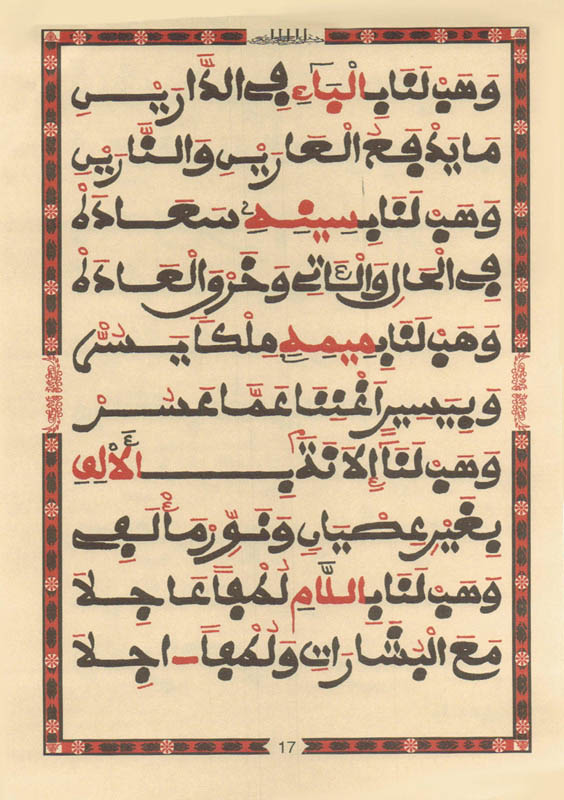 وَهَبْ لَنَا بِالْبَاءِ فِي الدَّارَيْنِ
مَا يَدْفَعُ الْعَارَيْنِ وَالنَّارَيْنِ
وَهَبْ لَنَا بِسِينِهِ سَعَادَهْ
فِي الْحَالِ وَالْآتِي وَخَرْقَ الْعَادَهْ
وَهَبْ لَنَا بِمِيمِهِ مُلْكًا يَسُرّْ
وَبِيَسِيرٍ اغْنِنَا عَمَّا عَسُرْ
وَهَبْ لَنَا إِلَانَةً بِالْأَلِفِ
بِغَيْرِ عِصْيَانٍ وَنَوِّرْ مَأْلَفِي
وَهَبْ لَنَا بِاللَّامِ لُطْفًا عَاجِلَا
مَعَ الْبِشَارَاتِ وَلُطْفًا آجِلَا
17